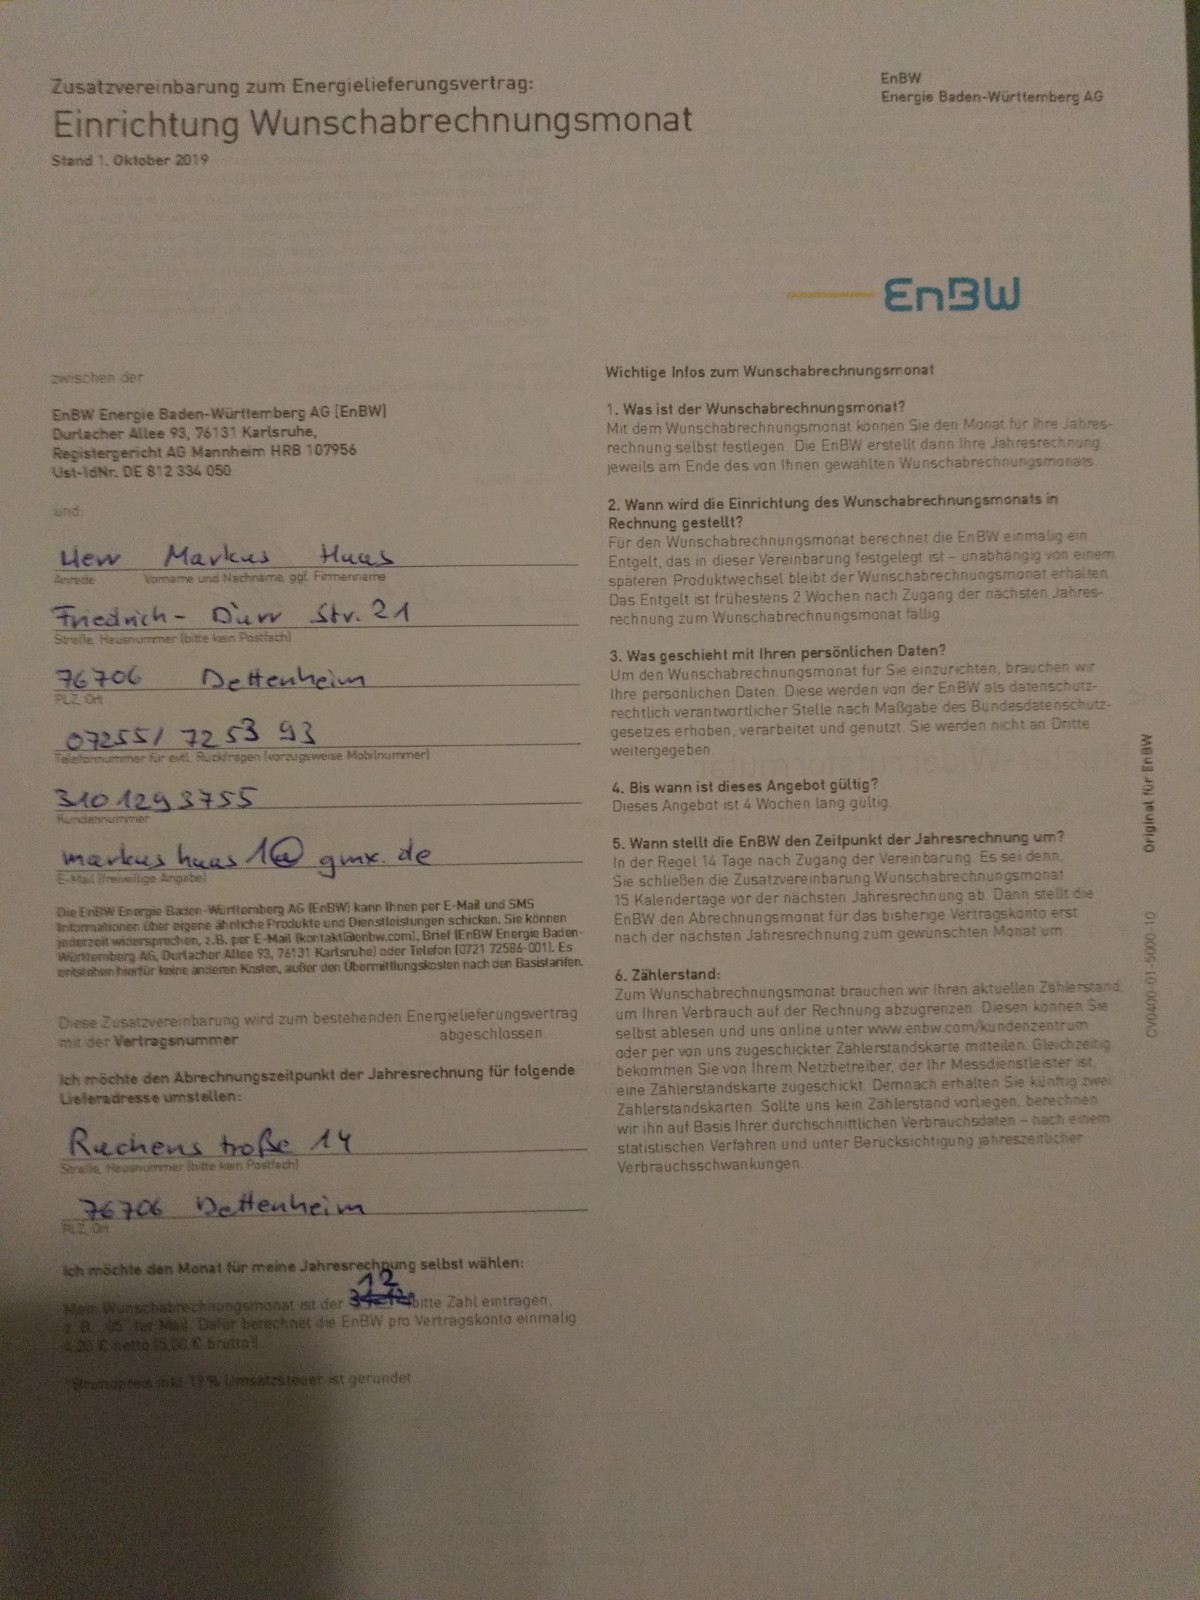 Zusatzvereinbarung zum Energielieferungsvertrag:
Einrichtung Wunschabrechnungsmonat
Stand 1. Oktober 2019
EnBW
Energie Baden-Württemberg AG
EnBW
zwischen der
EnBW Energie Baden-Württemberg AG (EnBW)
Durlacher Allee 93, 76131 Karlsruhe,
Registergericht AG Mannheim HRB 107956
Ust-IdNr. DE 812 334 050
und:
Herr Markus Haas
Anrede Vorname und Nachname, ggf. Firmenname
Friedrich- Dürr Str. 21
Straße, Hausnummer (bitte kein Postfach)
76706 Dettenheim
PLZ, Ort
07255/ 72 53 93
Telefonnummer für evtl. Rückfragen (vorzugsweise Mobilnummer)
310 129 3755
Kundennummer
markus haas 1@ gmx. de
E-Mail (freiwillige Angabe)
Die EnBW Energie Baden-Württemberg AG (EnBW) kann Ihnen per E-Mail und SMS
Informationen über eigene ähnliche Produkte und Dienstleistungen schicken. Sie können
jederzeit widersprechen, z.B. per E-Mail (kontakt@enbw.com), Brief (EnBW Energie Baden-
Württemberg AG, Durlacher Allee 93, 76131 Karlsruhe) oder Telefon (0721 72586-001). Es
entstehen hierfür keine anderen Kosten, außer den Übermittlungskosten nach den Basistarifen.
Diese Zusatzvereinbarung wird zum bestehenden Energielieferungsvertrag
mit der Vertragsnummer abgeschlossen.
Ich möchte den Abrechnungszeitpunkt der Jahresrechnung für folgende
Lieferadresse umstellen:
Rachenstroße 14
Straße, Hausnummer (bitte kein Postfach)
76706 Dettenheim
PLZ, Ort
Ich möchte den Monat für meine Jahresrechnung selbst wählen:
12
Mein Wunschabrechnungsmonat ist der bitte Zahl eintragen,
z. B. "05" für Mai). Dafür berechnet die EnBW pro Vertragskonto einmalig
4,20 € netto (5,00 € brutto¹).
¹Bruttopreis inkl. 19 % Umsatzsteuer ist gerundet.
Wichtige Infos zum Wunschabrechnungsmonat
1. Was ist der Wunschabrechnungsmonat?
Mit dem Wunschabrechnungsmonat können Sie den Monat für Ihre Jahres-
rechnung selbst festlegen. Die EnBW erstellt dann Ihre Jahresrechnung
jeweils am Ende des von Ihnen gewählten Wunschabrechnungsmonats.
2. Wann wird die Einrichtung des Wunschabrechnungsmonats in
Rechnung gestellt?
Für den Wunschabrechnungsmonat berechnet die EnBW einmalig ein
Entgelt, das in dieser Vereinbarung festgelegt ist – unabhängig von einem
späteren Produktwechsel bleibt der Wunschabrechnungsmonat erhalten.
Das Entgelt ist frühestens 2 Wochen nach Zugang der nächsten Jahres-
rechnung zum Wunschabrechnungsmonat fällig.
3. Was geschieht mit Ihren persönlichen Daten?
Um den Wunschabrechnungsmonat für Sie einzurichten, brauchen wir
Ihre persönlichen Daten. Diese werden von der EnBW als datenschutz-
rechtlich verantwortlicher Stelle nach Maßgabe des Bundesdatenschutz-
gesetzes erhoben, verarbeitet und genutzt. Sie werden nicht an Dritte
weitergegeben.
4. Bis wann ist dieses Angebot gültig?
Dieses Angebot ist 4 Wochen lang gültig.
5. Wann stellt die EnBW den Zeitpunkt der Jahresrechnung um?
In der Regel 14 Tage nach Zugang der Vereinbarung. Es sei denn,
Sie schließen die Zusatzvereinbarung Wunschabrechnungsmonat
15 Kalendertage vor der nächsten Jahresrechnung ab. Dann stellt die
EnBW den Abrechnungsmonat für das bisherige Vertragskonto erst
nach der nächsten Jahresrechnung zum gewünschten Monat um.
6. Zählerstand:
Zum Wunschabrechnungsmonat brauchen wir Ihren aktuellen Zählerstand,
um Ihren Verbrauch auf der Rechnung abzugrenzen. Diesen können Sie
selbst ablesen und uns online unter www.enbw.com/kundenzentrum
oder per von uns zugeschickter Zählerstandskarte mitteilen. Gleichzeitig
bekommen Sie von Ihrem Netzbetreiber, der Ihr Messdienstleister ist,
eine Zählerstandskarte zugeschickt. Demnach erhalten Sie künftig zwei
Zählerstandskarten. Sollte uns kein Zählerstand vorliegen, berechnen
wir ihn auf Basis Ihrer durchschnittlichen Verbrauchsdaten – nach einem
statistischen Verfahren und unter Berücksichtigung jahreszeitlicher
Verbrauchsschwankungen.
Original für EnBW
CV0400-01-5000-10